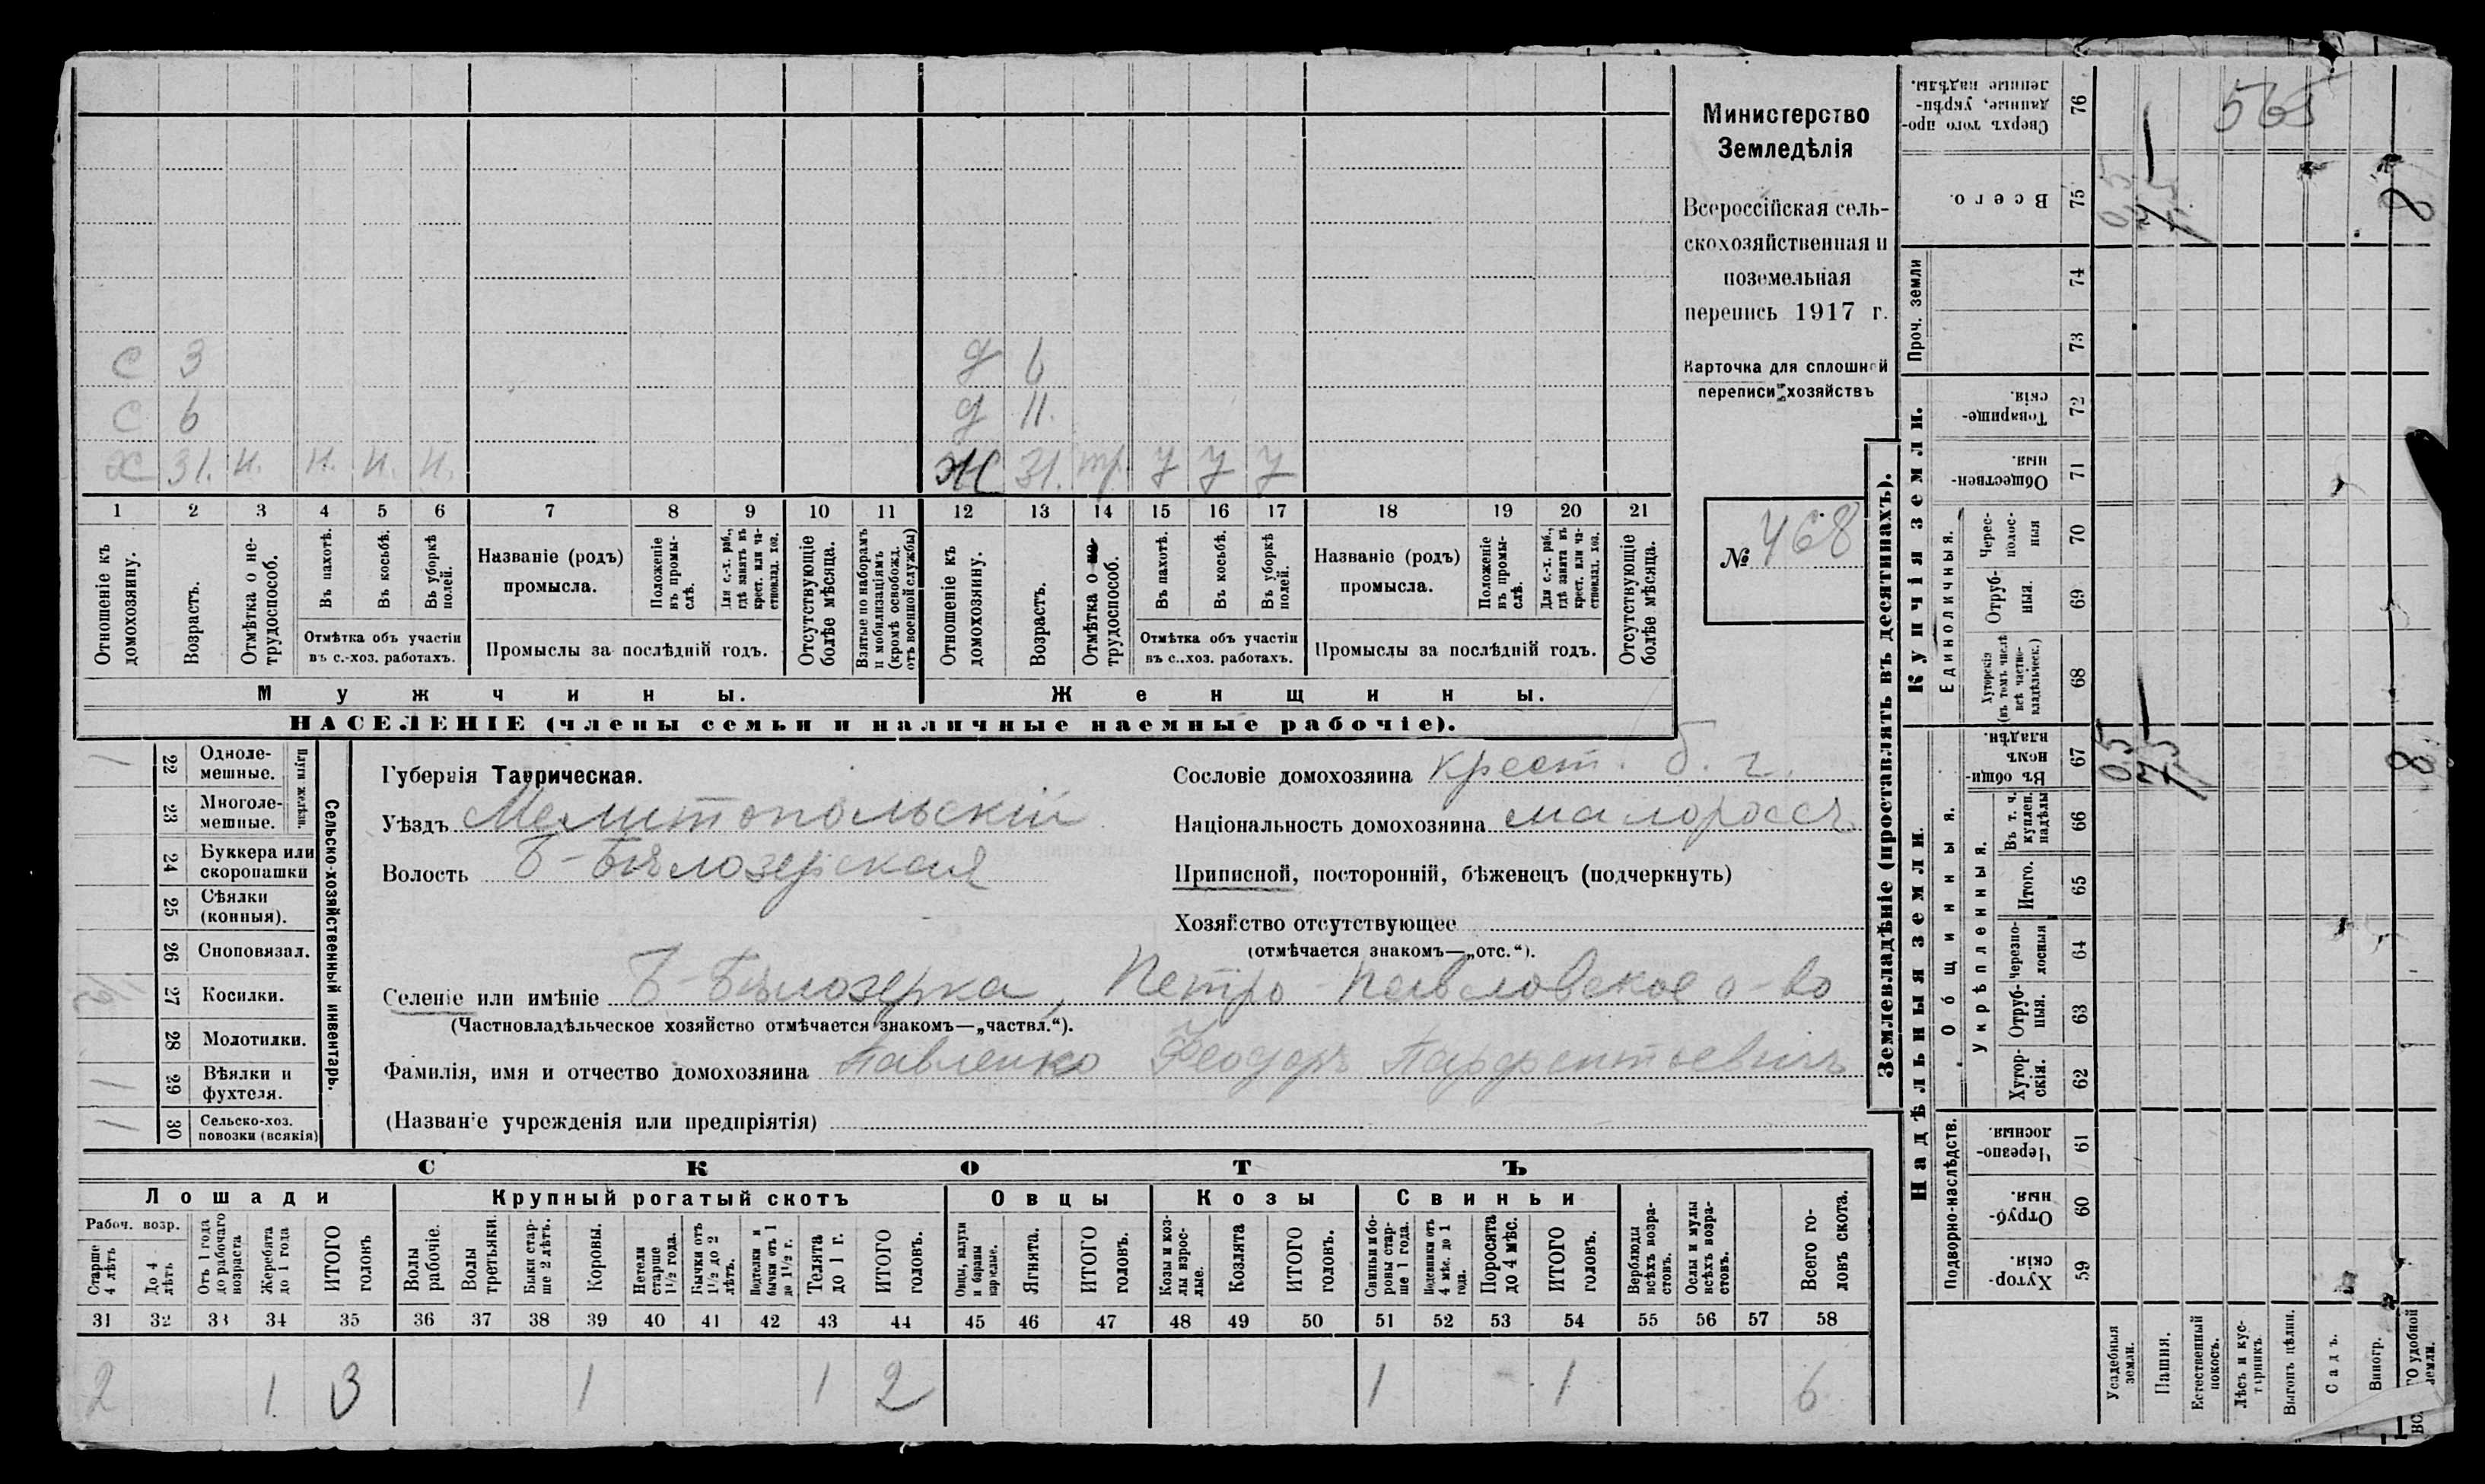 Министерство
Земледѣлія
Всероссійская сель-
скохозяйственная и
поземельная
перепись 1917 г.
Карточка для сплошной
переписи хозяйствъ
№ 468
С 3
С 6
Х 31. н. н. н. н.
д 6
д 11.
Ж 31. тр. у у у
1 2 3 4 5 6 7 8 9 10 11 12 13 14 15 16 17 18 19 20 21
Отношеніе къ домохозяину.
Возрастъ.
Отмѣтка о не-трудоспособ.
Въ пахотѣ.
Въ косьбѣ.
Въ уборкѣ полей.
Отмѣтка объ участіи
въ с.-хоз. работахъ.
Названіе (родъ)
промысла.
Положеніе въ промы-слѣ.
Для с.-х. раб., гдѣ занятъ въ крест. или ча-стновлад. хоз.
Промыслы за послѣдній годъ.
Отсутствующіе болѣе мѣсяца.
Взятые по наборамъ и мобилизаціямъ (кромѣ освобожд. отъ военной службы)
Отношеніе къ домохозяину.
Возрастъ.
Отмѣтка о не-трудоспособ.
Въ пахотѣ.
Въ косьбѣ.
Въ уборкѣ полей.
Отмѣтка объ участіи
въ с..хоз. работахъ.
Названіе (родъ)
промысла.
Положеніе въ промы-слѣ.
Для с.-х. раб., гдѣ занята въ крест. или ча-стновлад. хоз.
Промыслы за послѣдній годъ.
Отсутствующіе болѣе мѣсяца.
Мужчины.
Женщины.
НАСЕЛЕНІЕ (члены семьи и наличные наемные рабочіе).
Сельско-хозяйственный инвентарь.
Плуги желѣзн.
1 22 Одноле-мешные.
23 Многоле-мешные.
24 Буккера или скоропашки
25 Сѣялки (конныя).
26 Сноповязал.
27 Косилки.
28 Молотилки.
1 29 Вѣялки и фухтеля.
1 30 Сельско-хоз. повозки (всякія)
Губернія Таврическая.
Уѣздъ Мелитопольскій
Волость Б-Бѣлозерская
Сословіе домохозяина крест. б. г.
Національность домохозяина малороссъ
Приписной, посторонній, бѣженецъ (подчеркнуть)
Хозяйство отсутствующее
(отмѣчается знакомъ—„отс.“).
Селеніе или имѣніе Б-Бѣлозерка, Петро-Павловское о-во
(Частновладѣльческое хозяйство отмѣчается знакомъ—„частвл.“).
Фамилія, имя и отчество домохозяина Павленко Феодоръ Парфентьевичъ
(Названіе учрежденія или предпріятія)
СКОТЪ
Лошади
Крупный рогатый скотъ
Овцы
Козы
Свиньи
Рабоч. возр.
Старше 4 лѣтъ
До 4 лѣтъ
Отъ 1 года до рабочаго возраста
Жеребята до 1 года
ИТОГО головъ
Волы рабочіе.
Волы третьяки.
Быки стар-ше 2 лѣтъ.
Коровы.
Нетели старше 1½ года.
Бычки отъ 1½ до 2 лѣтъ.
Подтелки и бычки отъ 1 до 1½ г.
Телята до 1 г.
ИТОГО головъ.
Овцы, валухи и бараны взрослые.
Ягнята.
ИТОГО головъ.
Козы и коз-лы взрос-лые.
Козлята
ИТОГО головъ.
Свиньи и бо-ровы стар-ше 1 года.
Подсвинки отъ 4 мѣс. до 1 года.
Поросята до 4 мѣс.
ИТОГО головъ.
Верблюды всѣхъ возра-стовъ.
Ослы и мулы всѣхъ возра-стовъ.
Всего го-ловъ скота.
31 32 33 34 35 36 37 38 39 40 41 42 43 44 45 46 47 48 49 50 51 52 53 54 55 56 57 58
2 1 3 1 1 2 1 1 6
Землевладѣніе (проставлять въ десятинахъ).
Надѣльныя земли.
Купчія земли.
Проч. земли
Подворно-наслѣдств.
Общинныя.
Укрѣпленныя.
Единоличныя.
Сверхъ того про-данные, укрѣп-ленные надѣлы. 76
Всего. 75
74
73
Товарище-скія. 72
Обществен-ныя. 71
Черес-полос-ныя 70
Отруб-ныя. 69
Хуторскія (въ томъ числѣ всѣ частно-владѣльческ.) 68
Въ общин-номъ владѣн. 67
Въ т. ч. куплен. надѣлы 66
Итого. 65
Черезпо-лосныя 64
Отруб-ныя. 63
Хутор-скія. 62
Черезпо-лосныя. 61
Отруб-ныя. 60
Хутор-скія. 59
Усадебныя земли.
Пашня.
Естественный покосъ.
Лѣсъ и кус-тарникъ.
Выгонъ цѣлин.
Садъ.
Виногр.
удобной земли.
565
0,5
7,5
8
0,5
7,5
8